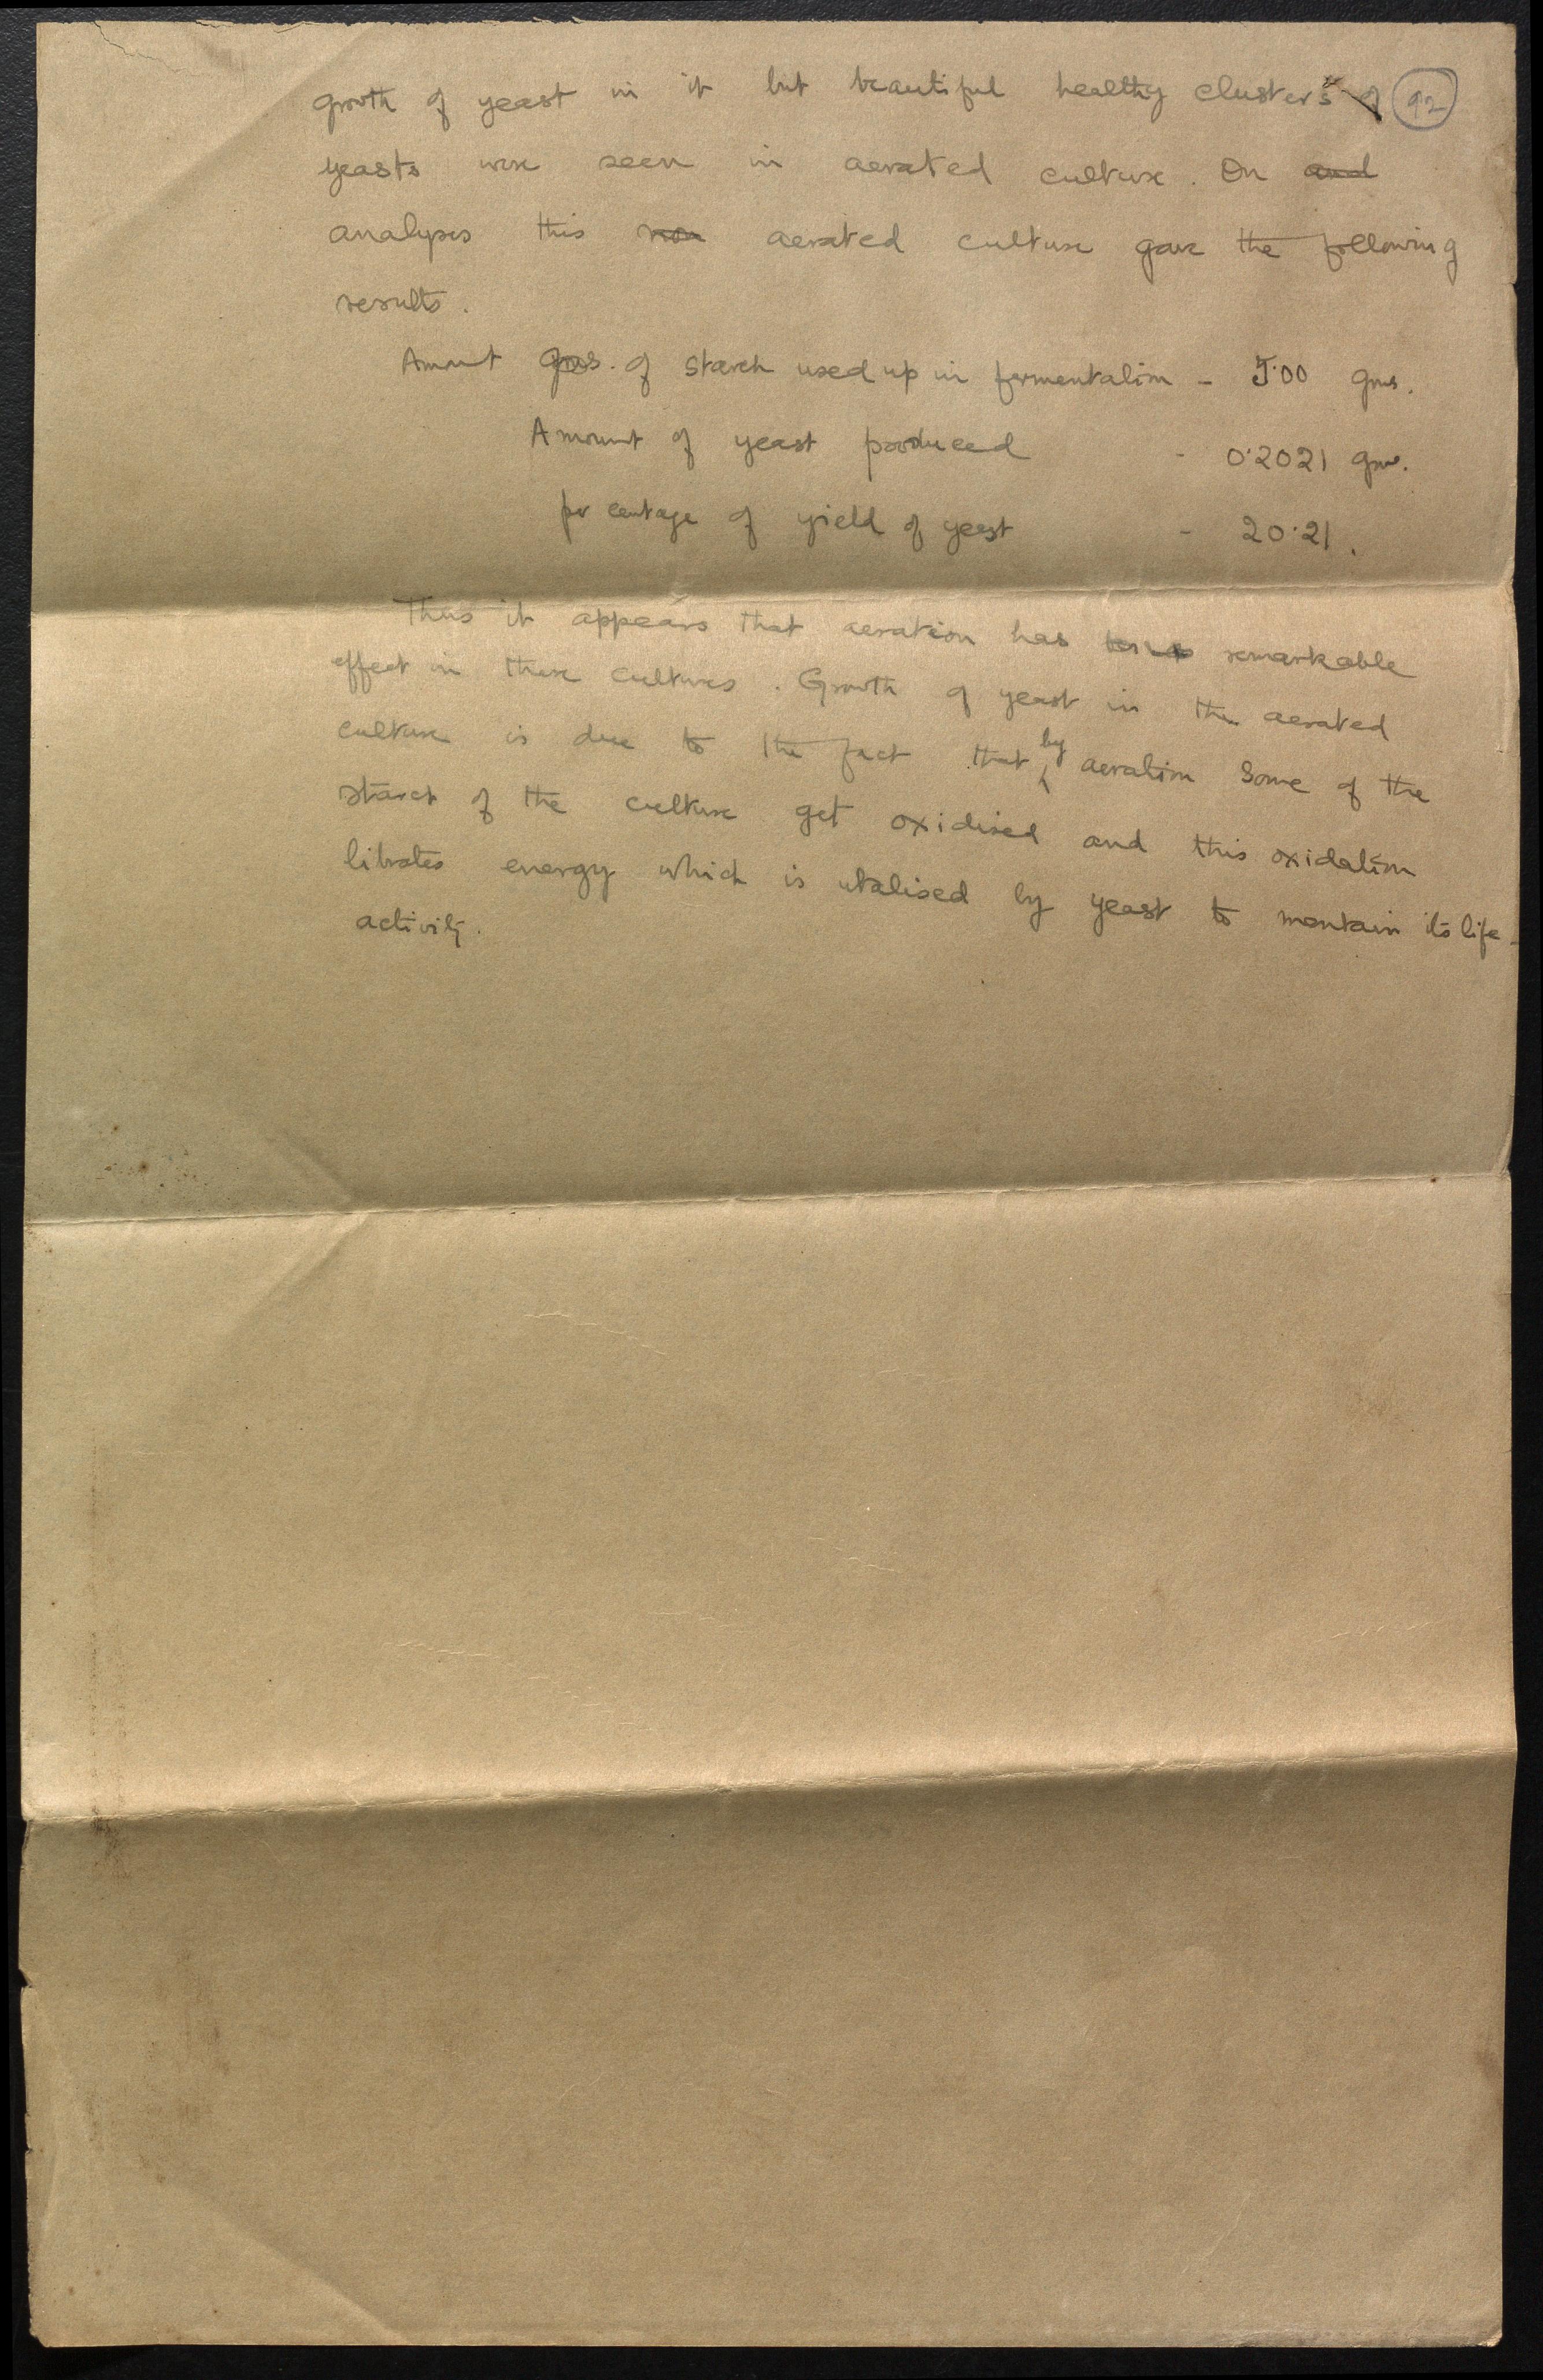 growth of yeast in it but beautiful healthy clusters of 92
yeasts were seen in aerated culture. On and
analyses this non aerated culture gave the following
results.
Amount gms. of starch used up in fermentation - 5·00 gms.
Amount of yeast produced - 0·2021 gms.
per centage of yield of yeast - 20·21.
Thus it appears that aeration has remarkable
effect in these cultures. Growth of yeast in the aerated
culture is due to the fact that by aeration some of the
starch of the culture get oxidised and this oxidation
librates energy which is utalised by yeast to mentain its life-
activity.